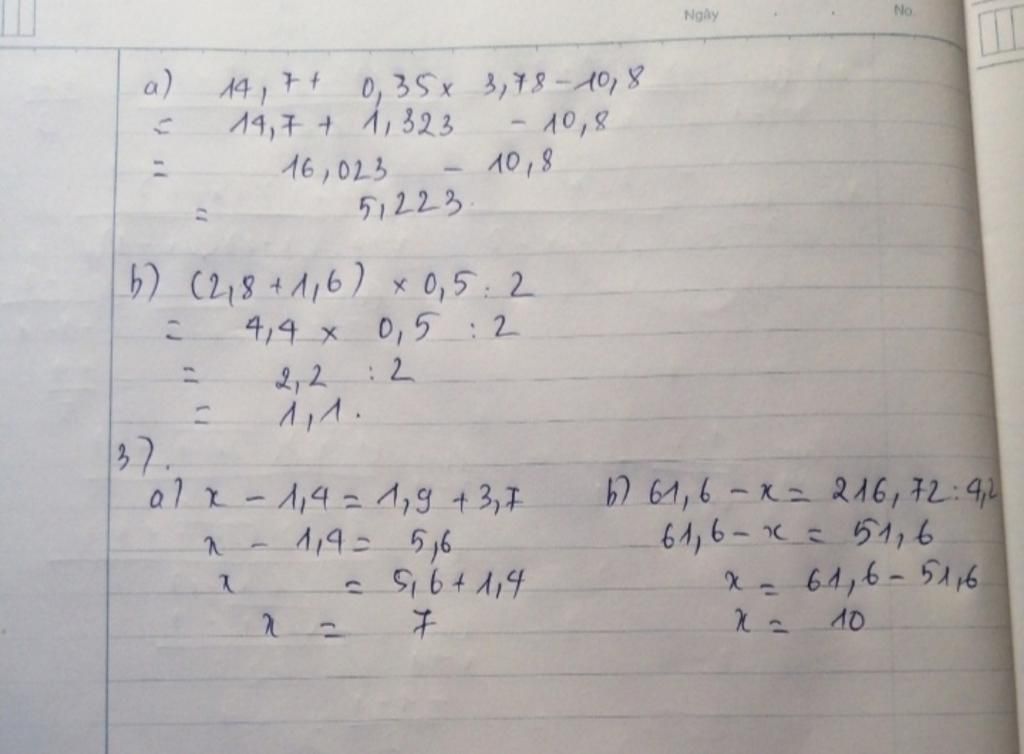 Ngày No.
a) 14,7 + 0,35 x 3,78 - 10,8
= 14,7 + 1,323 - 10,8
= 16,023 - 10,8
= 5,223.
b) (2,8 + 1,6) x 0,5 : 2
= 4,4 x 0,5 : 2
= 2,2 : 2
= 1,1.
3).
a) x - 1,4 = 1,9 + 3,7
x - 1,4 = 5,6
x = 5,6 + 1,4
x = 7
b) 61,6 - x = 216,72 : 4,2
61,6 - x = 51,6
x = 61,6 - 51,6
x = 10